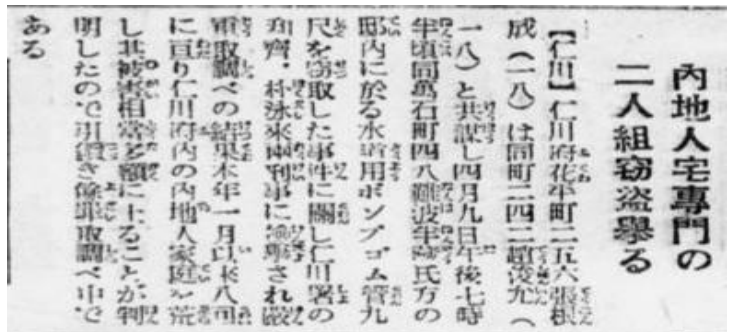 內地人宅專門の
二人組窃盜擧る
【仁川】仁川府花平町二五六張根
成（一八）は同町二四二趙浚九（
一八）と共謀し四月九日午後七時
半頃同萬石町四八難波 氏方の
邸內に於る水道用ポンプゴム管九
尺を窃取した事件に關し仁川署の
齊、朴 來兩刑事に 擧され嚴
重取調べの結果本年一月以來八回
に亘り仁川府內の內地人家庭を荒
し其被害相當多額に上ることが判
明したので引續き餘罪取調べ中で
ある